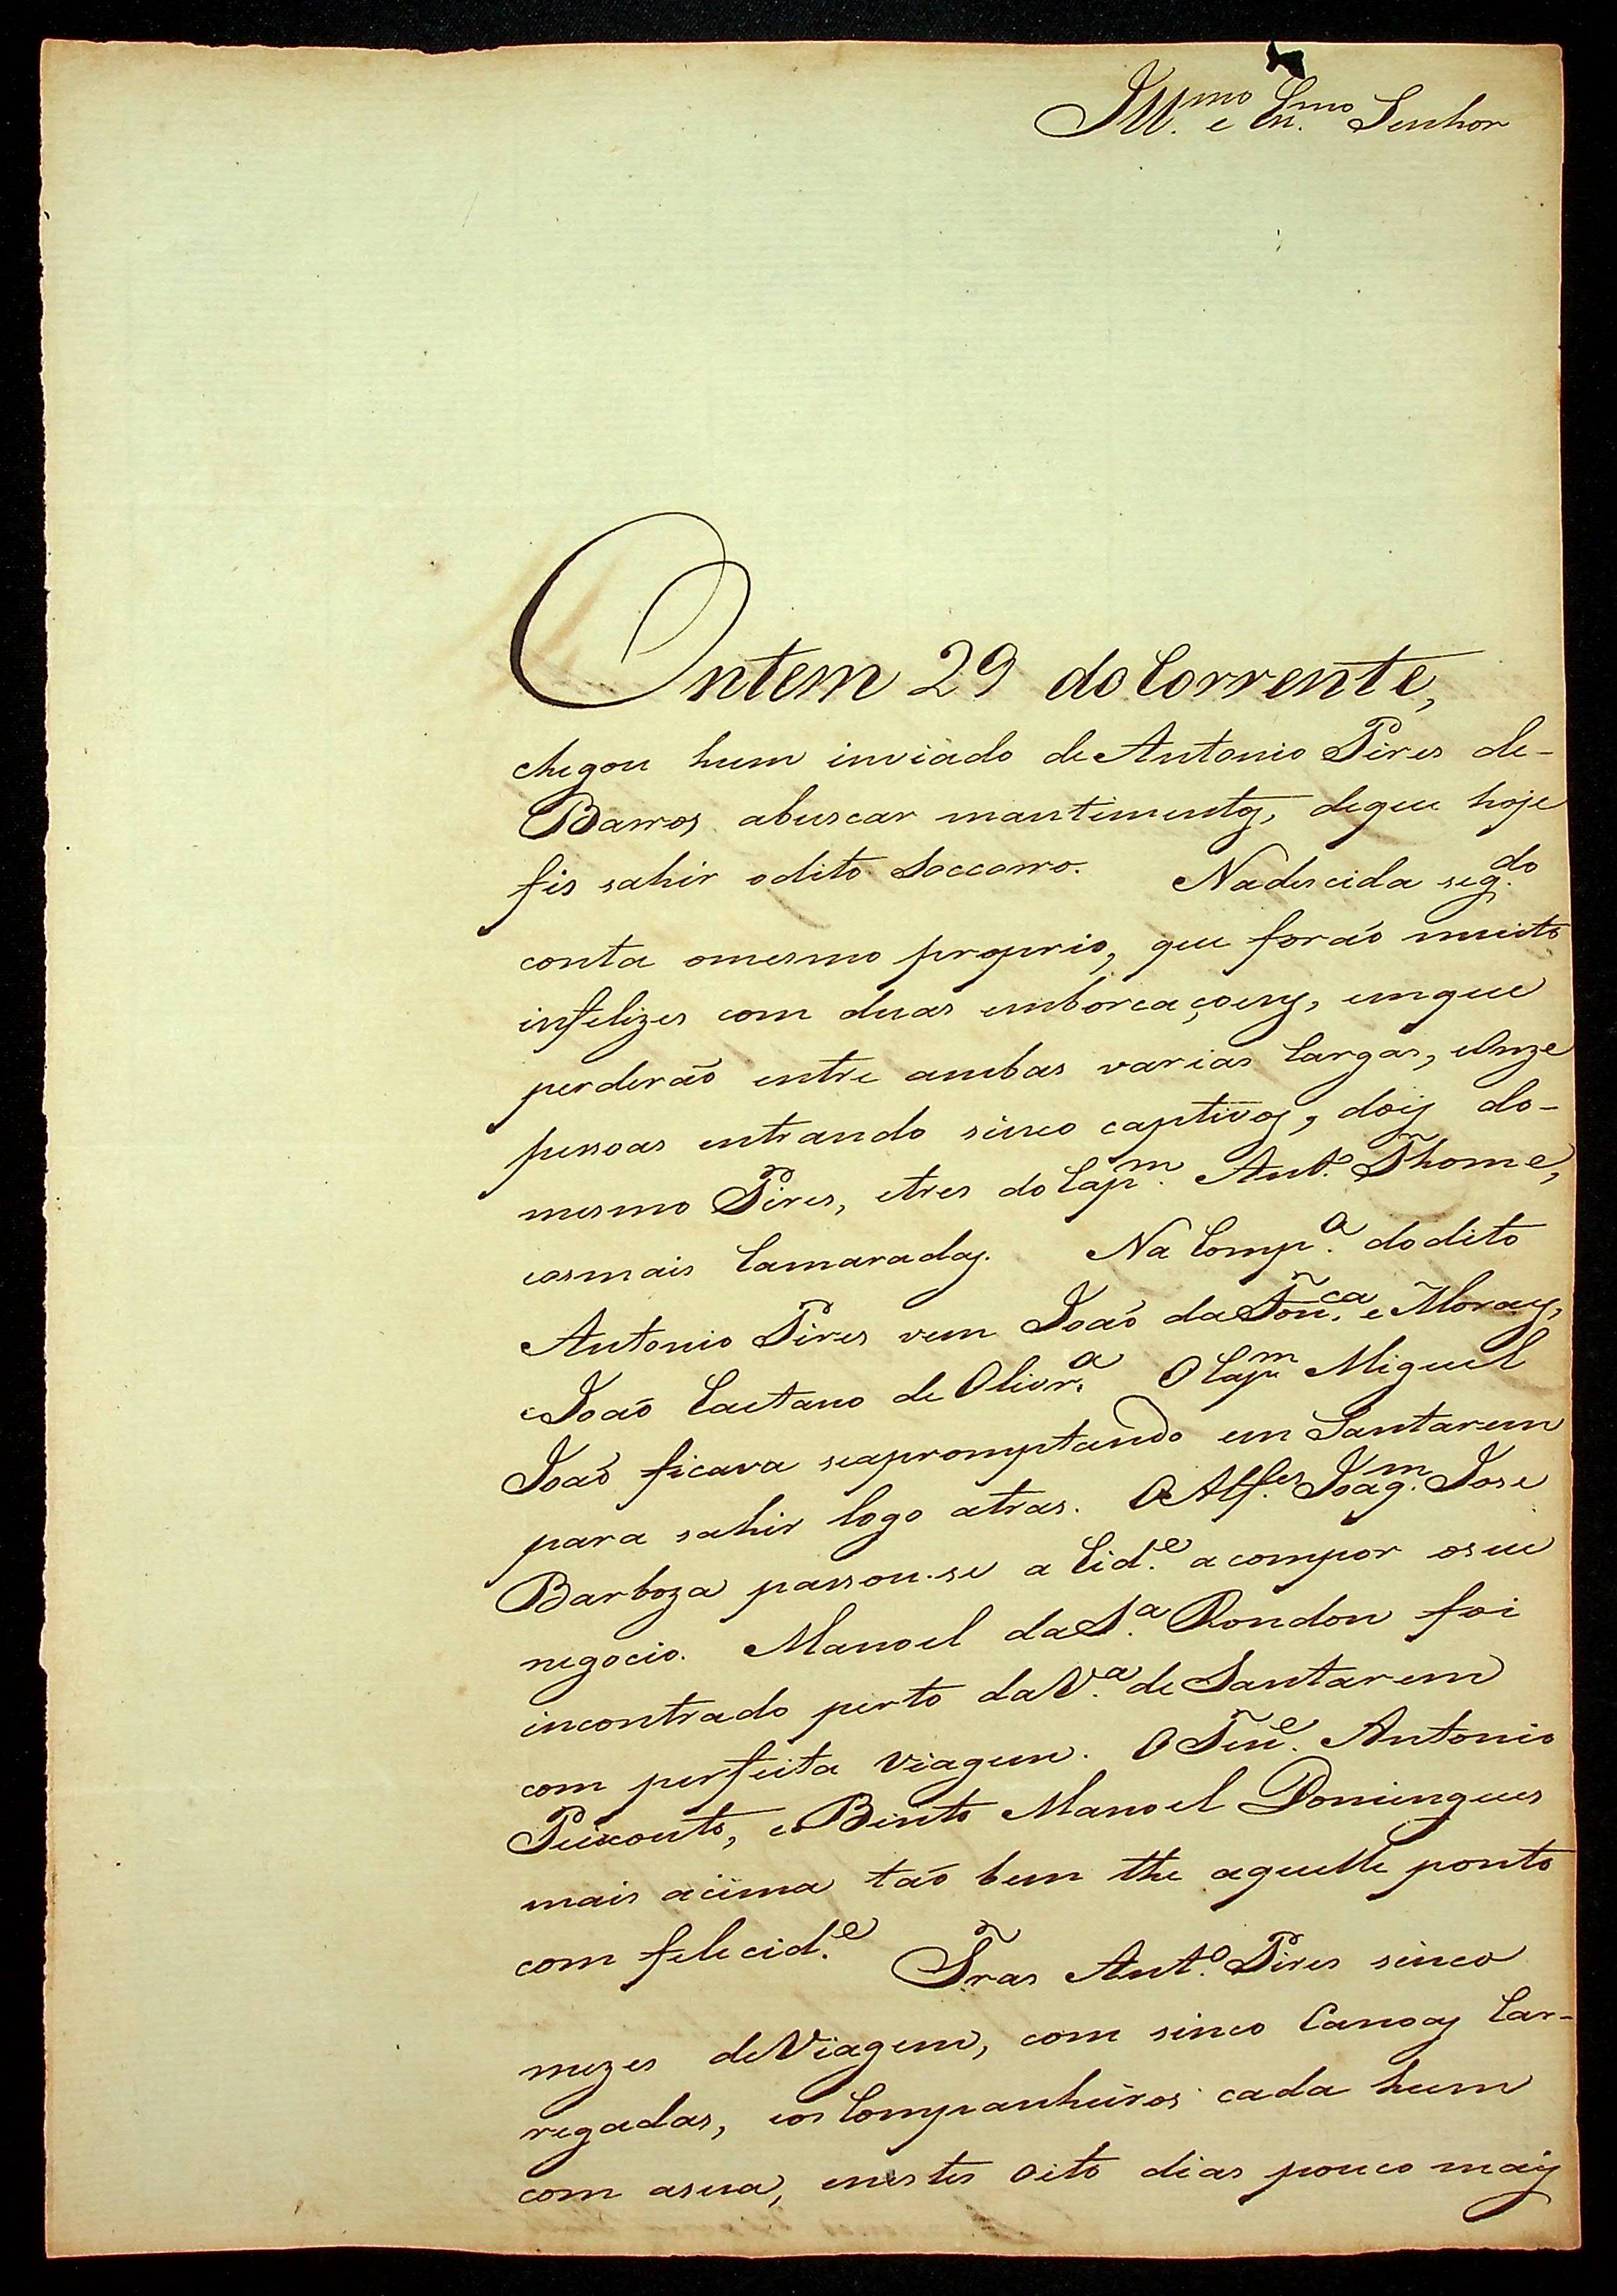 Ill.mo e Ex.mo Senhor
Ontem 29 do Corrente,
chegou hum inviado de Antonio Pires de-
Barros abuscar mantimentos, deque hoje
fis sahir odito Soccorro. Nadescida seg.do
conta omesmo proprio, que foraõ muito
infelizes com duas emborcaçoens, emque
perderaõ entre ambas varias Cargas, eOnze
pessoas entrando sinco captivos, dois do-
mesmo Pires, etres do Cap.m Ant.o Thome,
eosmais Camaradas. Na Comp.a dodito
Antonio Pires vem Joaõ daFon.ca e Moraes,
eJoaõ Caetano de Olivr.a O Cap.m Miguel
Joaõ ficava seapromptando em Santarem
para sahir logo atras. O Alf.es Joaq.m Jose
Barboza passou-se a Cid.e a compor oseu
negocio. Manoel daS.a Rondon foi
incontrado perto daV.a de Santarem
com perfeita Viagem. O Ten.e Antonio
Peixouto, eBento Manoel Domingues
mais acima taõ bem the aquelle ponto
com felecid.e Tras Ant.o Pires sinco
mezes deViagem, com sinco Canoas Car-
regadas, eosCompanheiros cada hum
com asua, enestes Oito dias pouco mais